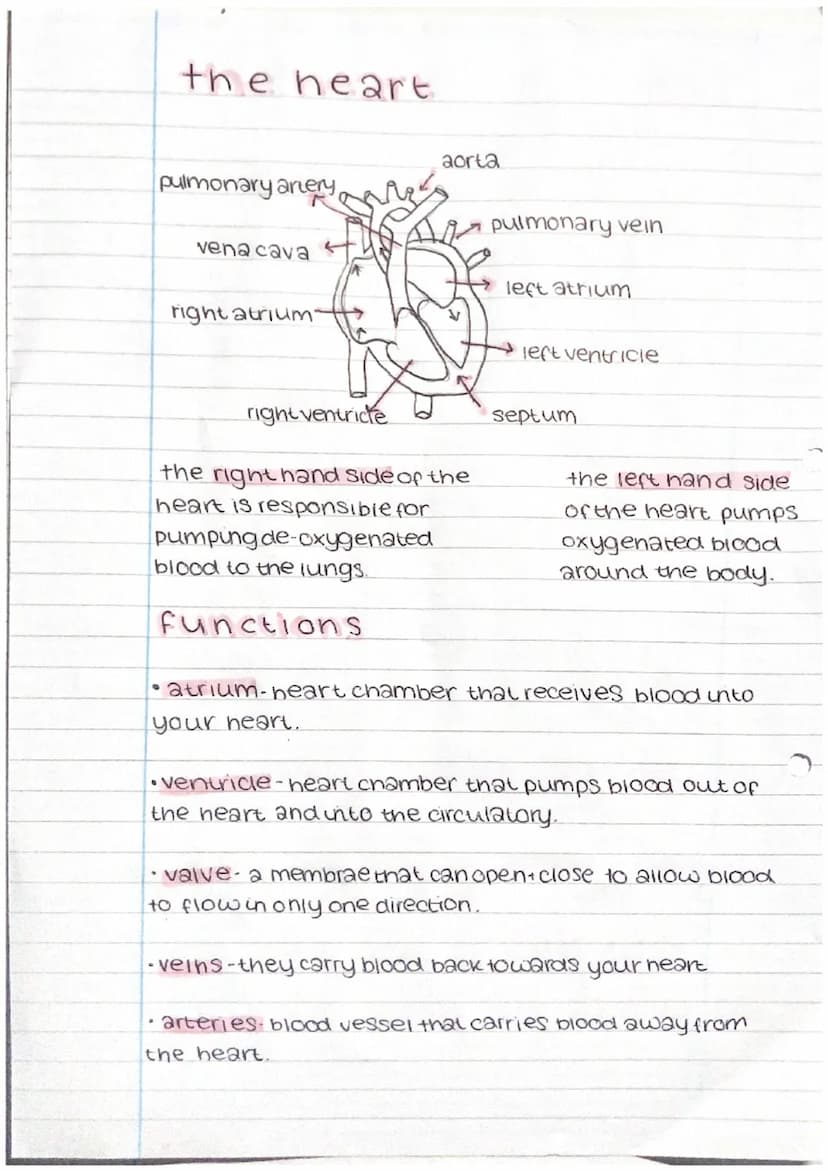 the heart
aorta
pulmonary artery
pulmonary vein
vena cava
left atrium
right atrium
left ventricle
right ventricle
septum
the right hand side of the
heart is responsible for
pumping de-oxygenated
blood to the lungs.
the left hand side
of the heart pumps
oxygenated blood
around the body.
functions
• atrium - heart chamber that receives blood into
your heart.
• ventricle - heart chamber that pumps blood out of
the heart and into the circulatory.
• valve - a membrae that can open + close to allow blood
to flow in only one direction.
• veins - they carry blood back towards your heart
• arteries - blood vessel that carries blood away from
the heart.